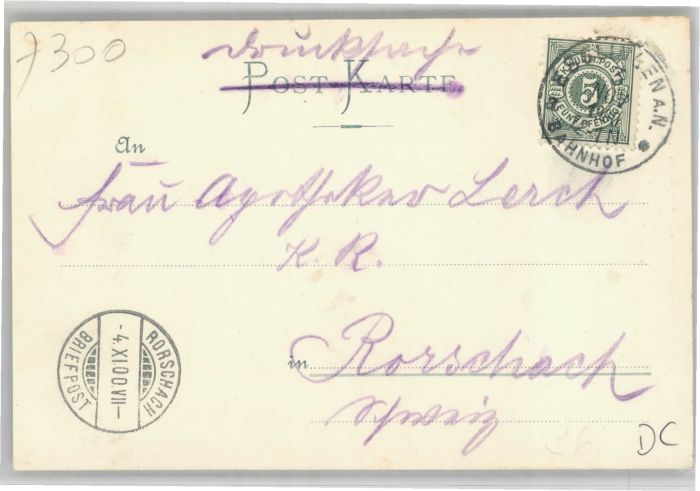 7300
Drucksache
POST KARTE
An
Frau Apotheker Lerch
K. R.
in Rorschach
Schweiz
K. WÜRTT. POST
5
FÜNF PFENNIG
EN A.N.
BAHNHOF
RORSCHACH
-4.XI.00.VII-
BRIEFPOST
36
DC